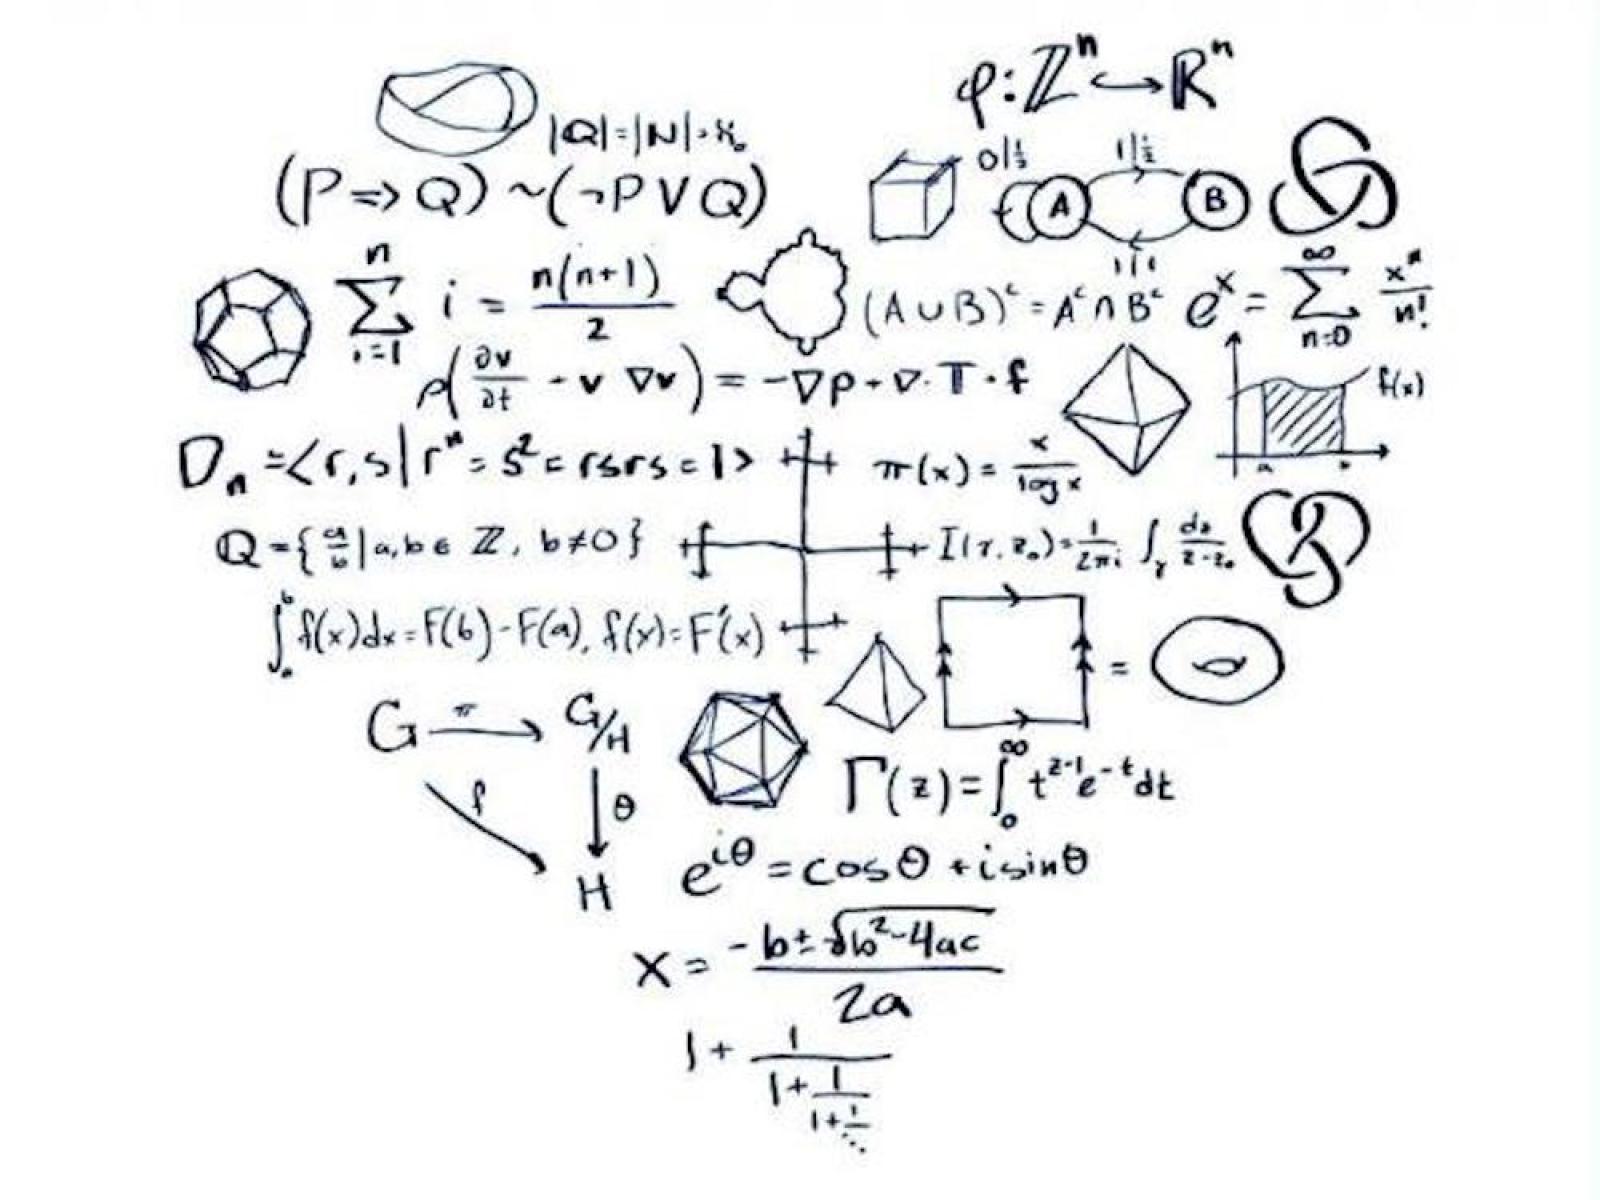 φ: ℤⁿ ↪ ℝⁿ
|Q| = |N| = ℵ₀
(P ⇒ Q) ~ (¬P ∨ Q)
0|½ 1|½
A B
1|1
n ∑ i=1 i = n(n+1) / 2
(A ∪ B)ᶜ = Aᶜ ∩ Bᶜ
eˣ = ∞ ∑ n=0 xⁿ / n!
ρ(∂v/∂t - v ∇v) = -∇p + ∇·T · f
f(x)
a b
Dₙ = <r, s | rⁿ = s² = rsrs = 1>
π(x) = x / log x
Q = { a/b | a, b ∈ ℤ, b ≠ 0 }
I(γ, z₀) = 1/2πi ∫γ dz / z - z₀
∫ₐᵇ f(x)dx = F(b) - F(a), f(x) = F'(x)
=
G π G/H
f θ
H
Γ(z) = ∫₀^∞ t^(z-1) e^(-t) dt
e^(iθ) = cosθ + i sinθ
x = -b ± √(b² - 4ac) / 2a
1 + 1 / (1 + 1 / (1 + 1 / ⋱))